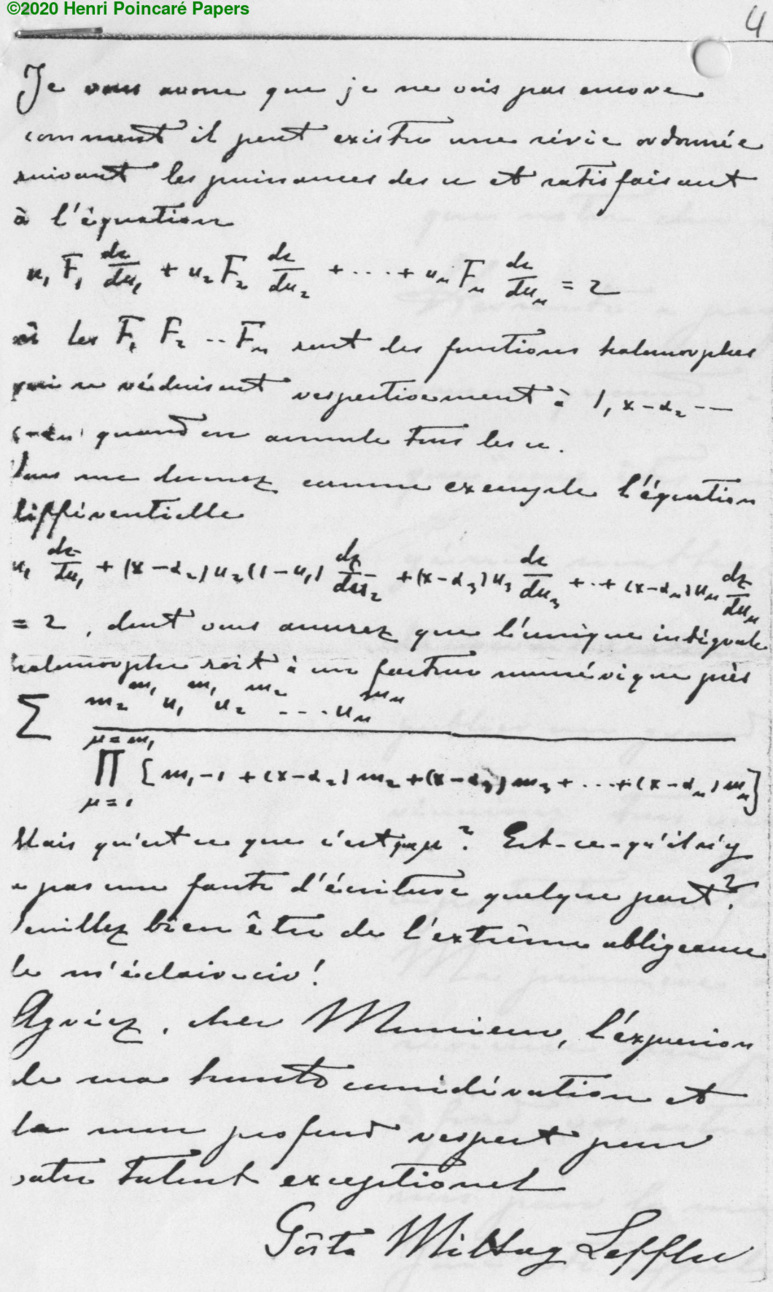 ©2020 Henri Poincaré Papers
4
Je vous avoue que je ne vois pas encore
comment il peut exister une série ordonnée
suivant les puissances des u et satisfaisant
à l'équation
u₁ F₁ dz/du₁ + u₂ F₂ dz/du₂ + .... + uₙ Fₙ dz/duₙ = z
si les F₁ F₂ .. Fₙ sont des fonctions holomorphes
qui se réduisent respectivement à 1, x-α₂ --
x-αₙ quand on annule tous les u.
Vous me donnez comme exemple l'équation
différentielle
u₁ dz/du₁ + (x-α₂) u₂ (1-u₁) dz/du₂ + (x-α₃) u₃ dz/du₃ + .. + (x-αₙ) uₙ dz/duₙ
= z, dont vous assurez que l'unique intégrale
holomorphe soit à un facteur numérique près
Σ m₂^m₁ u₁^m₁ u₂^m₂ .... uₙ^mₙ
μ=m₁
∏ {m₁-1 + (x-α₂) m₂ + (x-α₃) m₃ + ... + (x-αₙ) mₙ}
μ=1
Mais qu'est ce que c'est que μ? Est-ce-qu'il n'y
a pas une faute d'écriture quelque part?
Veuillez bien être de l'extrême obligeance
de m'éclaircir!
Agréez, cher Monsieur, l'expression
de ma haute considération et
de mon profond respect pour
votre talent exceptionel
Gösta Mittag Leffler